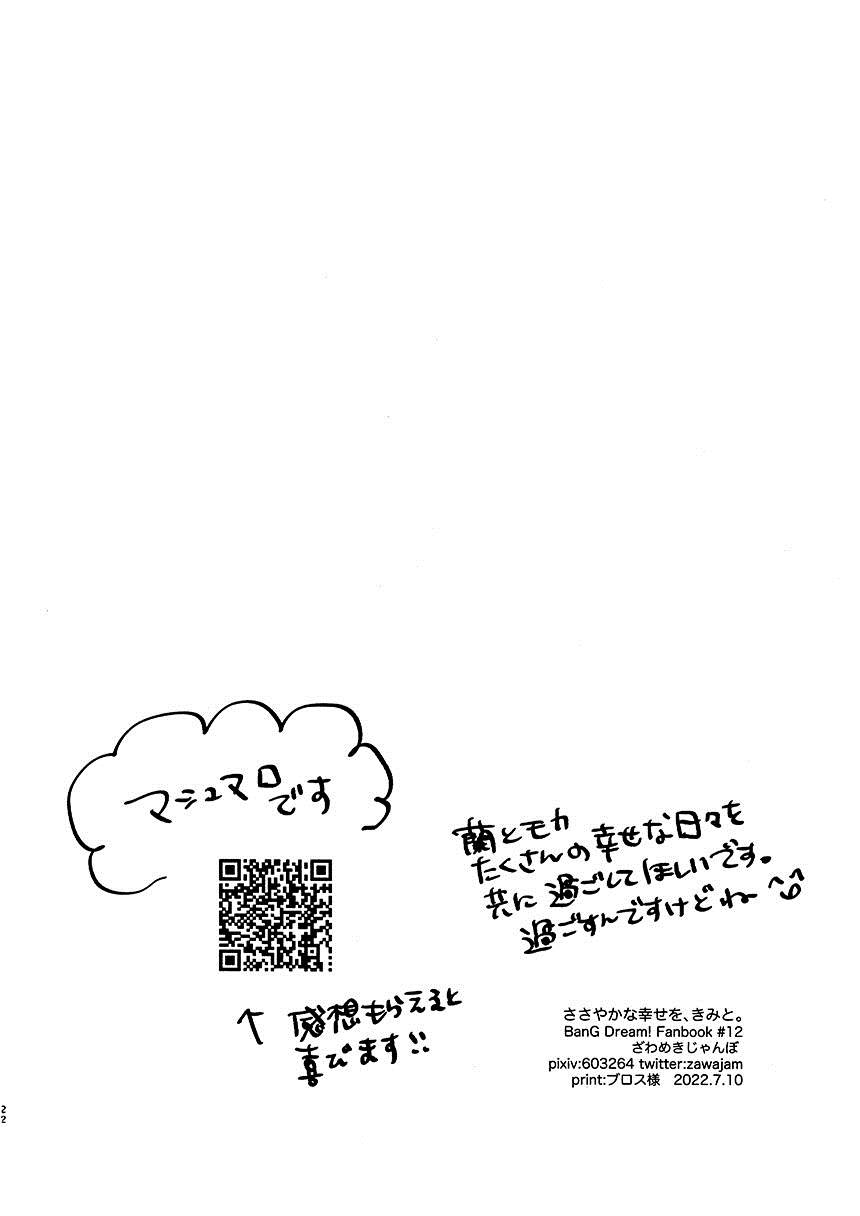 マシュマロ
です
蘭とモカ
たくさんの幸せな日々を
共に過ごしてほしいです。
過ごすんですけどねー
↑ 感想もらえると
喜びます!!
ささやかな幸せを、きみと。
BanG Dream! Fanbook #12
ざわめきじゃんぼ
pixiv:603264 twitter:zawajam
print:ブロス様 2022.7.10
22